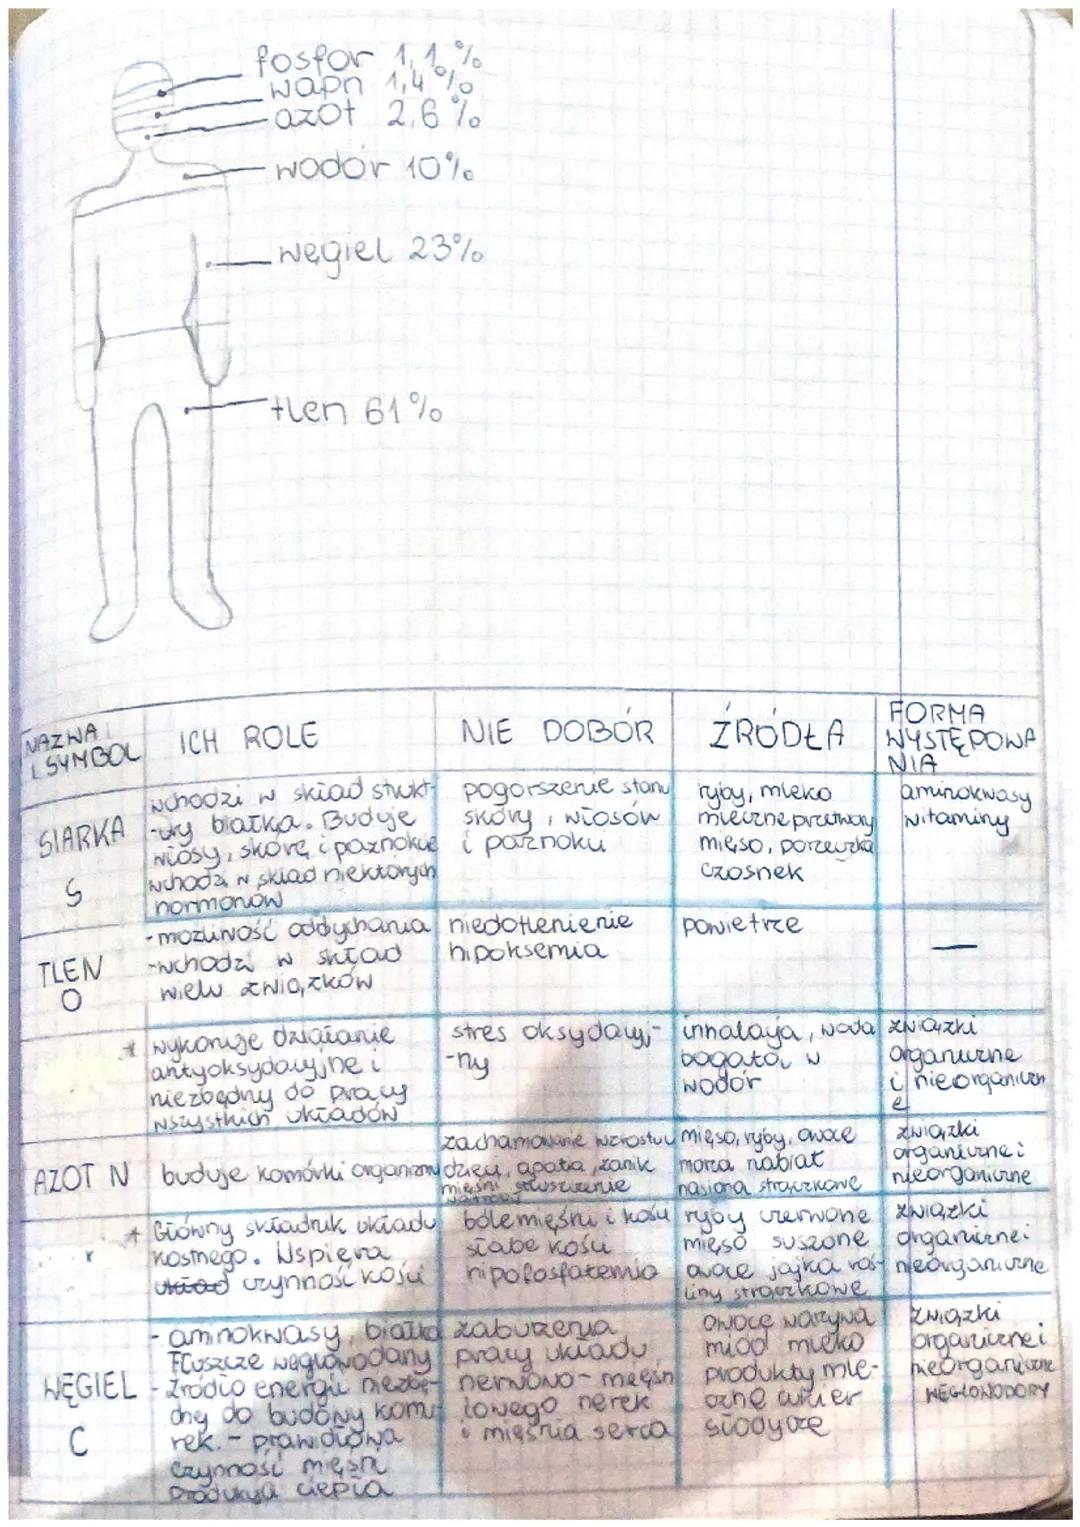 fosfor 1,1%
wapń 1,4%
azot 2,6%
wodór 10%
węgiel 23%
tlen 61%
NAZWA I SYMBOL
ICH ROLE
NIE DOBÓR
ŹRÓDŁA
FORMA
WYSTĘPOWA
NIA
SIARKA
S
wchodzi w skład strukt-
-ury białka. Buduje
włosy, skórę i paznokcie
wchodzi w skład niektórych
hormonów
pogorszenie stanu
skóry, włosów
i paznokci
ryby, mleko
mleczne przetwory
mięso, porzeczka
czosnek
aminokwasy
witaminy
TLEN
O
- możliwość oddychania
- wchodzi w skład
wielu związków
niedotlenienie
hipoksemia
powietrze
—
* wykonuje działanie
antyoksydacyjne i
niezbędny do pracy
wszystkich układów
stres oksydacyj-
-ny
inhalacja, woda
bogata w
wodór
związki
organiczne
i nieorganiczn
e
AZOT N
buduje komórki organizmu
zachamowanie wzrostu u
dzieci, apatia, zanik
mięśni
mięso, ryby, owoce
morza nabiał
nasiona strączkowe
związki
organiczne i
nieorganiczne
* Główny składnik układu
kostnego. Wspiera
układ czynność kości
bóle mięśni i kości
słabe kości
hipofosfatemia
ryby czerwone
mięso suszone
owoce jajka roś-
liny strączkowe
związki
organiczne i
nieorganiczne
WĘGIEL
C
- aminokwasy, białka
tłuszcze węglowodany
- źródło energii niezbę-
dny do budowy komó-
rek. - prawidłowa
czynność mięśni
produkcja ciepła
zaburzenia
pracy układu
nerwowo-mięśn
iowego nerek
i mięśnia serca
owoce warzywa
miód mleko
produkty mle-
czne cukier
słodycze
związki
organiczne i
nieorganiczne
WĘGLOWODORY